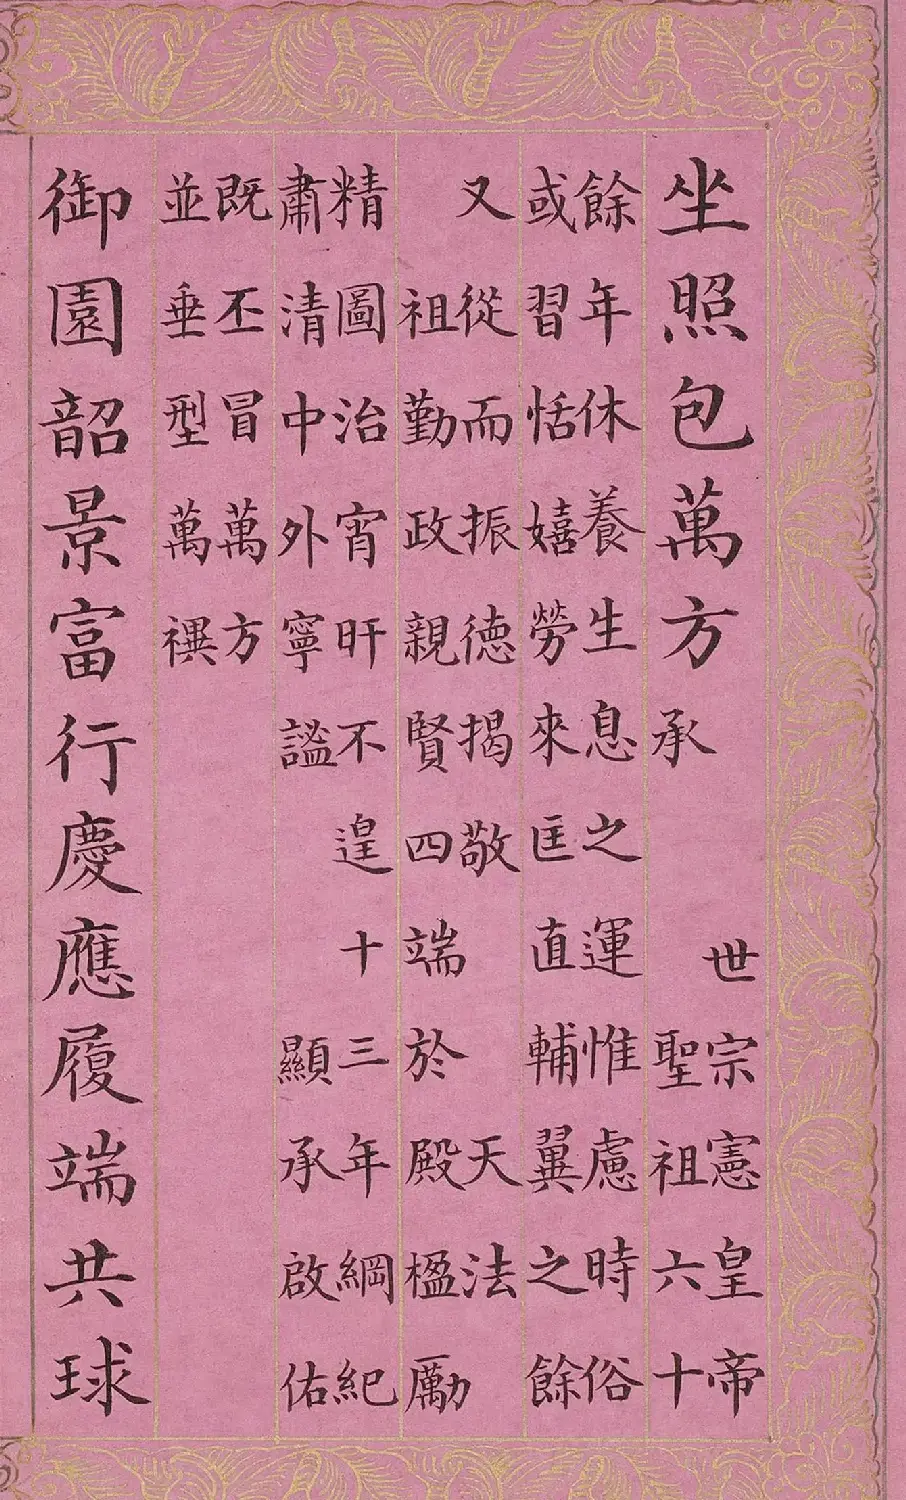 坐照包萬方
世宗憲皇帝
承聖祖六十
餘年休養生息之運惟慮時俗
或習恬嬉勞來匡直輔翼之餘
又從而振徳揭敬天法
祖勤政親賢四端於殿楹厲
精圖治宵旰不遑十三年綱紀
肅清中外寧謐顯承啟佑
既丕冒萬方
並垂型萬禩
御園韶景富行慶應履端共球